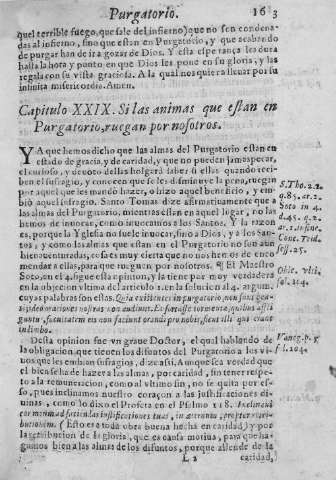 Purgatorio. 163
quel terrible fuego, que sale del infierno) que no son condena-
das al infierno, sino que estan en Purgatorio, y que acabando
de purgar han de ir a gozar de Dios. Y esta esperança les dura
hasta la hora y punto en que Dios les pone en su gloria, y las
regala con su vista graciosa. A la qual nos quiera llevar por su
infinita misericordia. Amen.
Capitulo XXIX. Si las animas que estan en
Purgatorio, ruegan por nosotros.
YA que hemos dicho que las almas del Purgatorio estan en
estado de gracia, y de caridad, y que no pueden jamas pecar,
el curioso, y devoto dellas holgarà saber si ellas quando reci-
ben el sufragio, y conocen que se les disminuye la pena, ruegan
por aquel que les mandò hazer, o hizo aquel beneficio, y em-
biò aquel sufragio. Santo Tomas dize afirmativamente que a
las almas del Purgatorio, mientras estan en aquel lugar, no las
hemos de invocar, como invocamos a los Santos. Y la razon
es, porque la Yglesia no suele invocar, sino a Dios, y a los San-
tos, y como las almas que estan en el Purgatorio no son aun
bienaventuradas, cosa es muy cierta que no nos hemos de enco-
mendar a ellas, para que rueguen por nosotros. ¶ El Maestro
Soto, en el 4. sigue esta opinion, y la tiene por muy verdadera
en la objecion ultima del articulo 2. en la solucion al 4. argum.
cuyas palabras son estas. Quia existentes in purgatorio, non
preces nostras non audiunt. Et
Desta opinion fue un graue Doctor, el qual hablando de
la obligacion que tienen los difuntos del Purgatorio a los vi-
vos que les embian sufragios, dize assi. Aunque sea verdad que
el bien se ha de hazer a las almas, por caridad, sin tener respe-
to a la remuneracion, como al ultimo fin, no se quita por es-
so, pues inclinamos nuestro coraçon a las justificaciones di-
vinas, como lo dixo el Profeta en el Psalmo 118. Inclinavi
cor meum ad faciendas iustificationes tuas, in aeternum, propter retri-
butionem. (Esto es a toda obra buena hecha en caridad) y por
la retribucion de la gloria, que es causa motiva, para que ha-
gamos bien a las almas de los difuntos, porque allende de la
L 2 caridad,
S. Tho. 2. 2.
q. 83. ar. 2.
Soto in 4.
d. 45. q. 2.
ar. 2. in fine.
Conc. Trid.
sess. 25.
Obie. vlti.
fol. 204.
Vaneg. p. 3
f. 204.